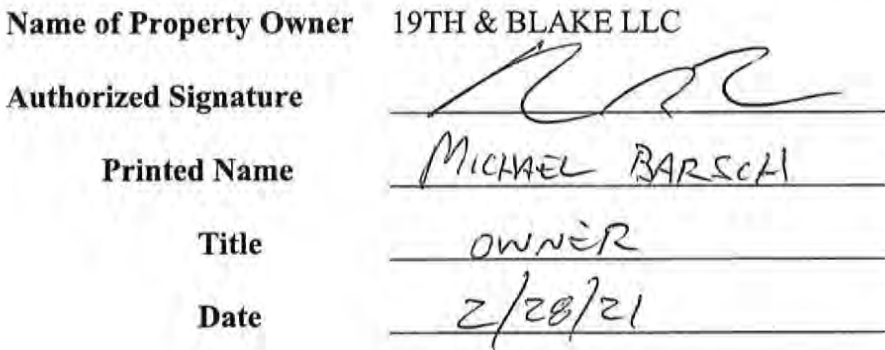 Name of Property Owner 19TH & BLAKE LLC
Authorized Signature
Printed Name MICHAEL BARSCH
Title OWNER
Date 2/28/21